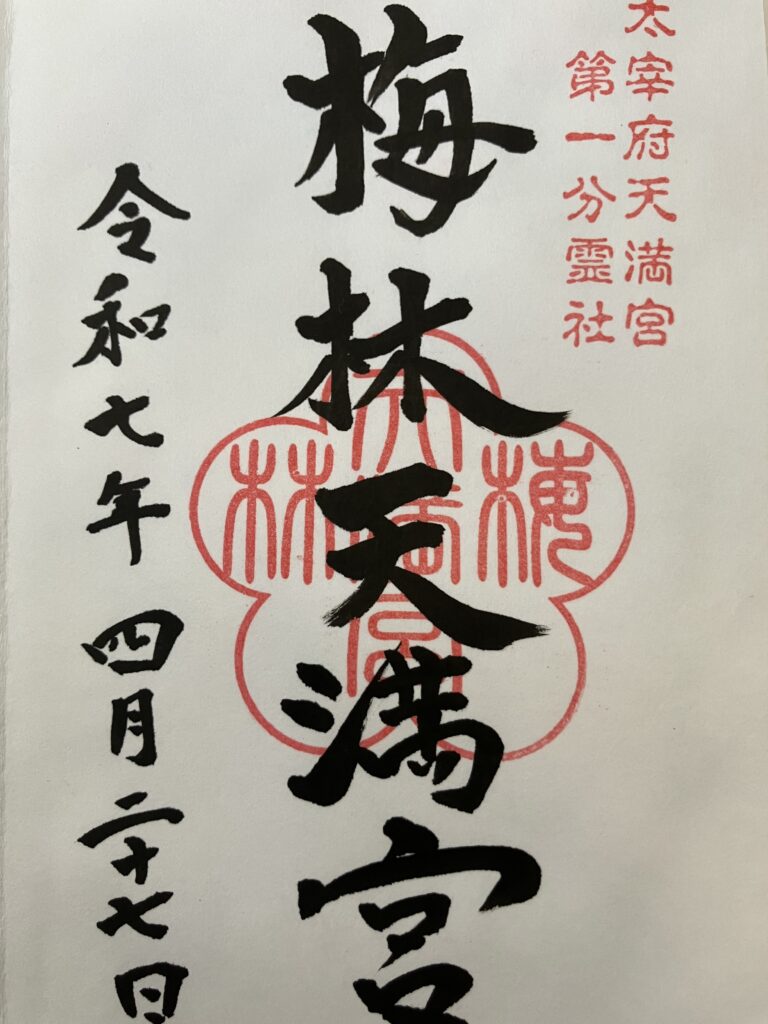 太宰府天満宮
第一分霊社
梅林天満宮
梅林
天満宮
令和七年四月二十七日